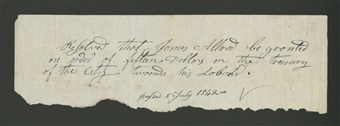 Resolved that James Allred be granted
an order of fifteen Dollars on the treasury
of the City towards his Labor.
passed 5 July 1842